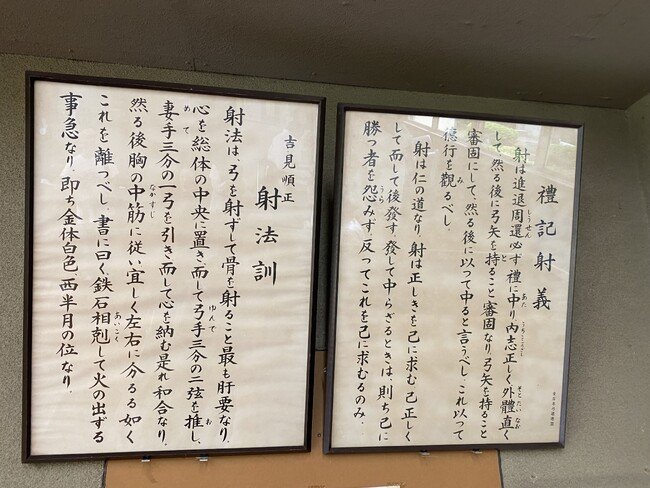 禮記射義
射は進退周還必ず禮に中り、内志正しく外體直く
して、然る後に弓矢を持ること審固なり弓矢を持ること
審固にして、然る後に以って中ると言うべし、これ以って
德行を觀るべし。
射は仁の道なり。射は正しきを己に求む、己正しく
して而して後發す、發して中らざるときは、則ち己に
勝つ者を怨みず、反ってこれを己に求むるのみ。
吉見順正
射法訓
射法は、弓を射ずして骨を射ること最も肝要なり。
心を総体の中央に置き、而して弓手三分の二弦を推し、
妻手三分の一弓を引き而して心を納む是れ和合なり。
然る後胸の中筋に従い宜しく左右に分るる如く
これを離つべし。書に曰く、鉄石相剋して火の出ずる
事急なり。即ち金体白色、西半月の位なり。